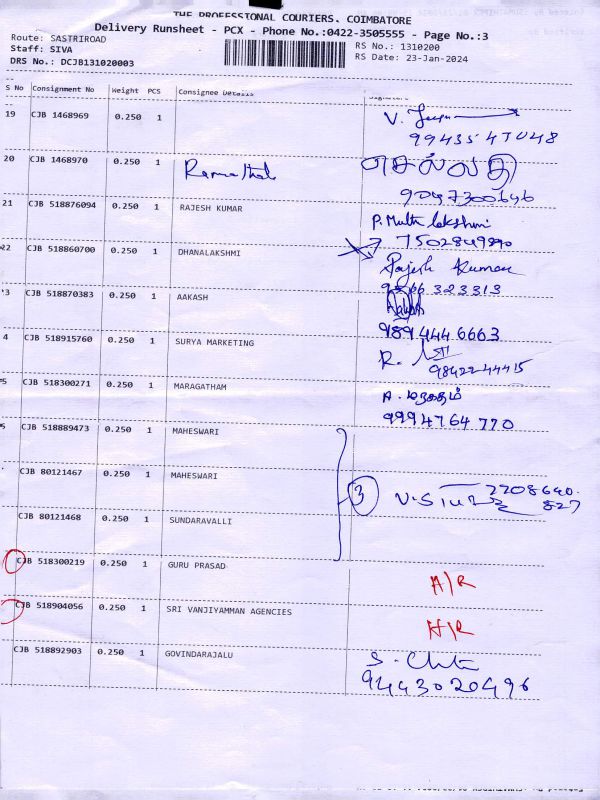 THE PROFESSIONAL COURIERS. COIMBATORE
Delivery Runsheet - PCX - Phone No.:0422-3505555 - Page No.:3
Route: SASTRIROAD
Staff: SIVA
DRS No.: DCJB131020003
RS No.: 1310200
RS Date: 23-Jan-2024
S No Consignment No Weight PCS Consignee Details
19 CJB 1468969 0.250 1 V.
9943547048
20 CJB 1468970 0.250 1 செல்வி
9047300646
21 CJB 518876094 0.250 1 RAJESH KUMAR P. Muthu lakshmi
22 CJB 518860700 0.250 1 DHANALAKSHMI Rajesh Kumar
323313
3 CJB 518870383 0.250 1 AAKASH
9894446663
4 CJB 518915760 0.250 1 SURYA MARKETING R.
9842244415
5 CJB 518300271 0.250 1 MARAGATHAM A. மரகதம்
9994764770
CJB 518889473 0.250 1 MAHESWARI
CJB 80121467 0.250 1 MAHESWARI 3
CJB 80121468 0.250 1 SUNDARAVALLI
CJB 518300219 0.250 1 GURU PRASAD A/R
CJB 518904056 0.250 1 SRI VANJIYAMMAN AGENCIES H/R
CJB 518892903 0.250 1 GOVINDARAJALU S.
9443020496